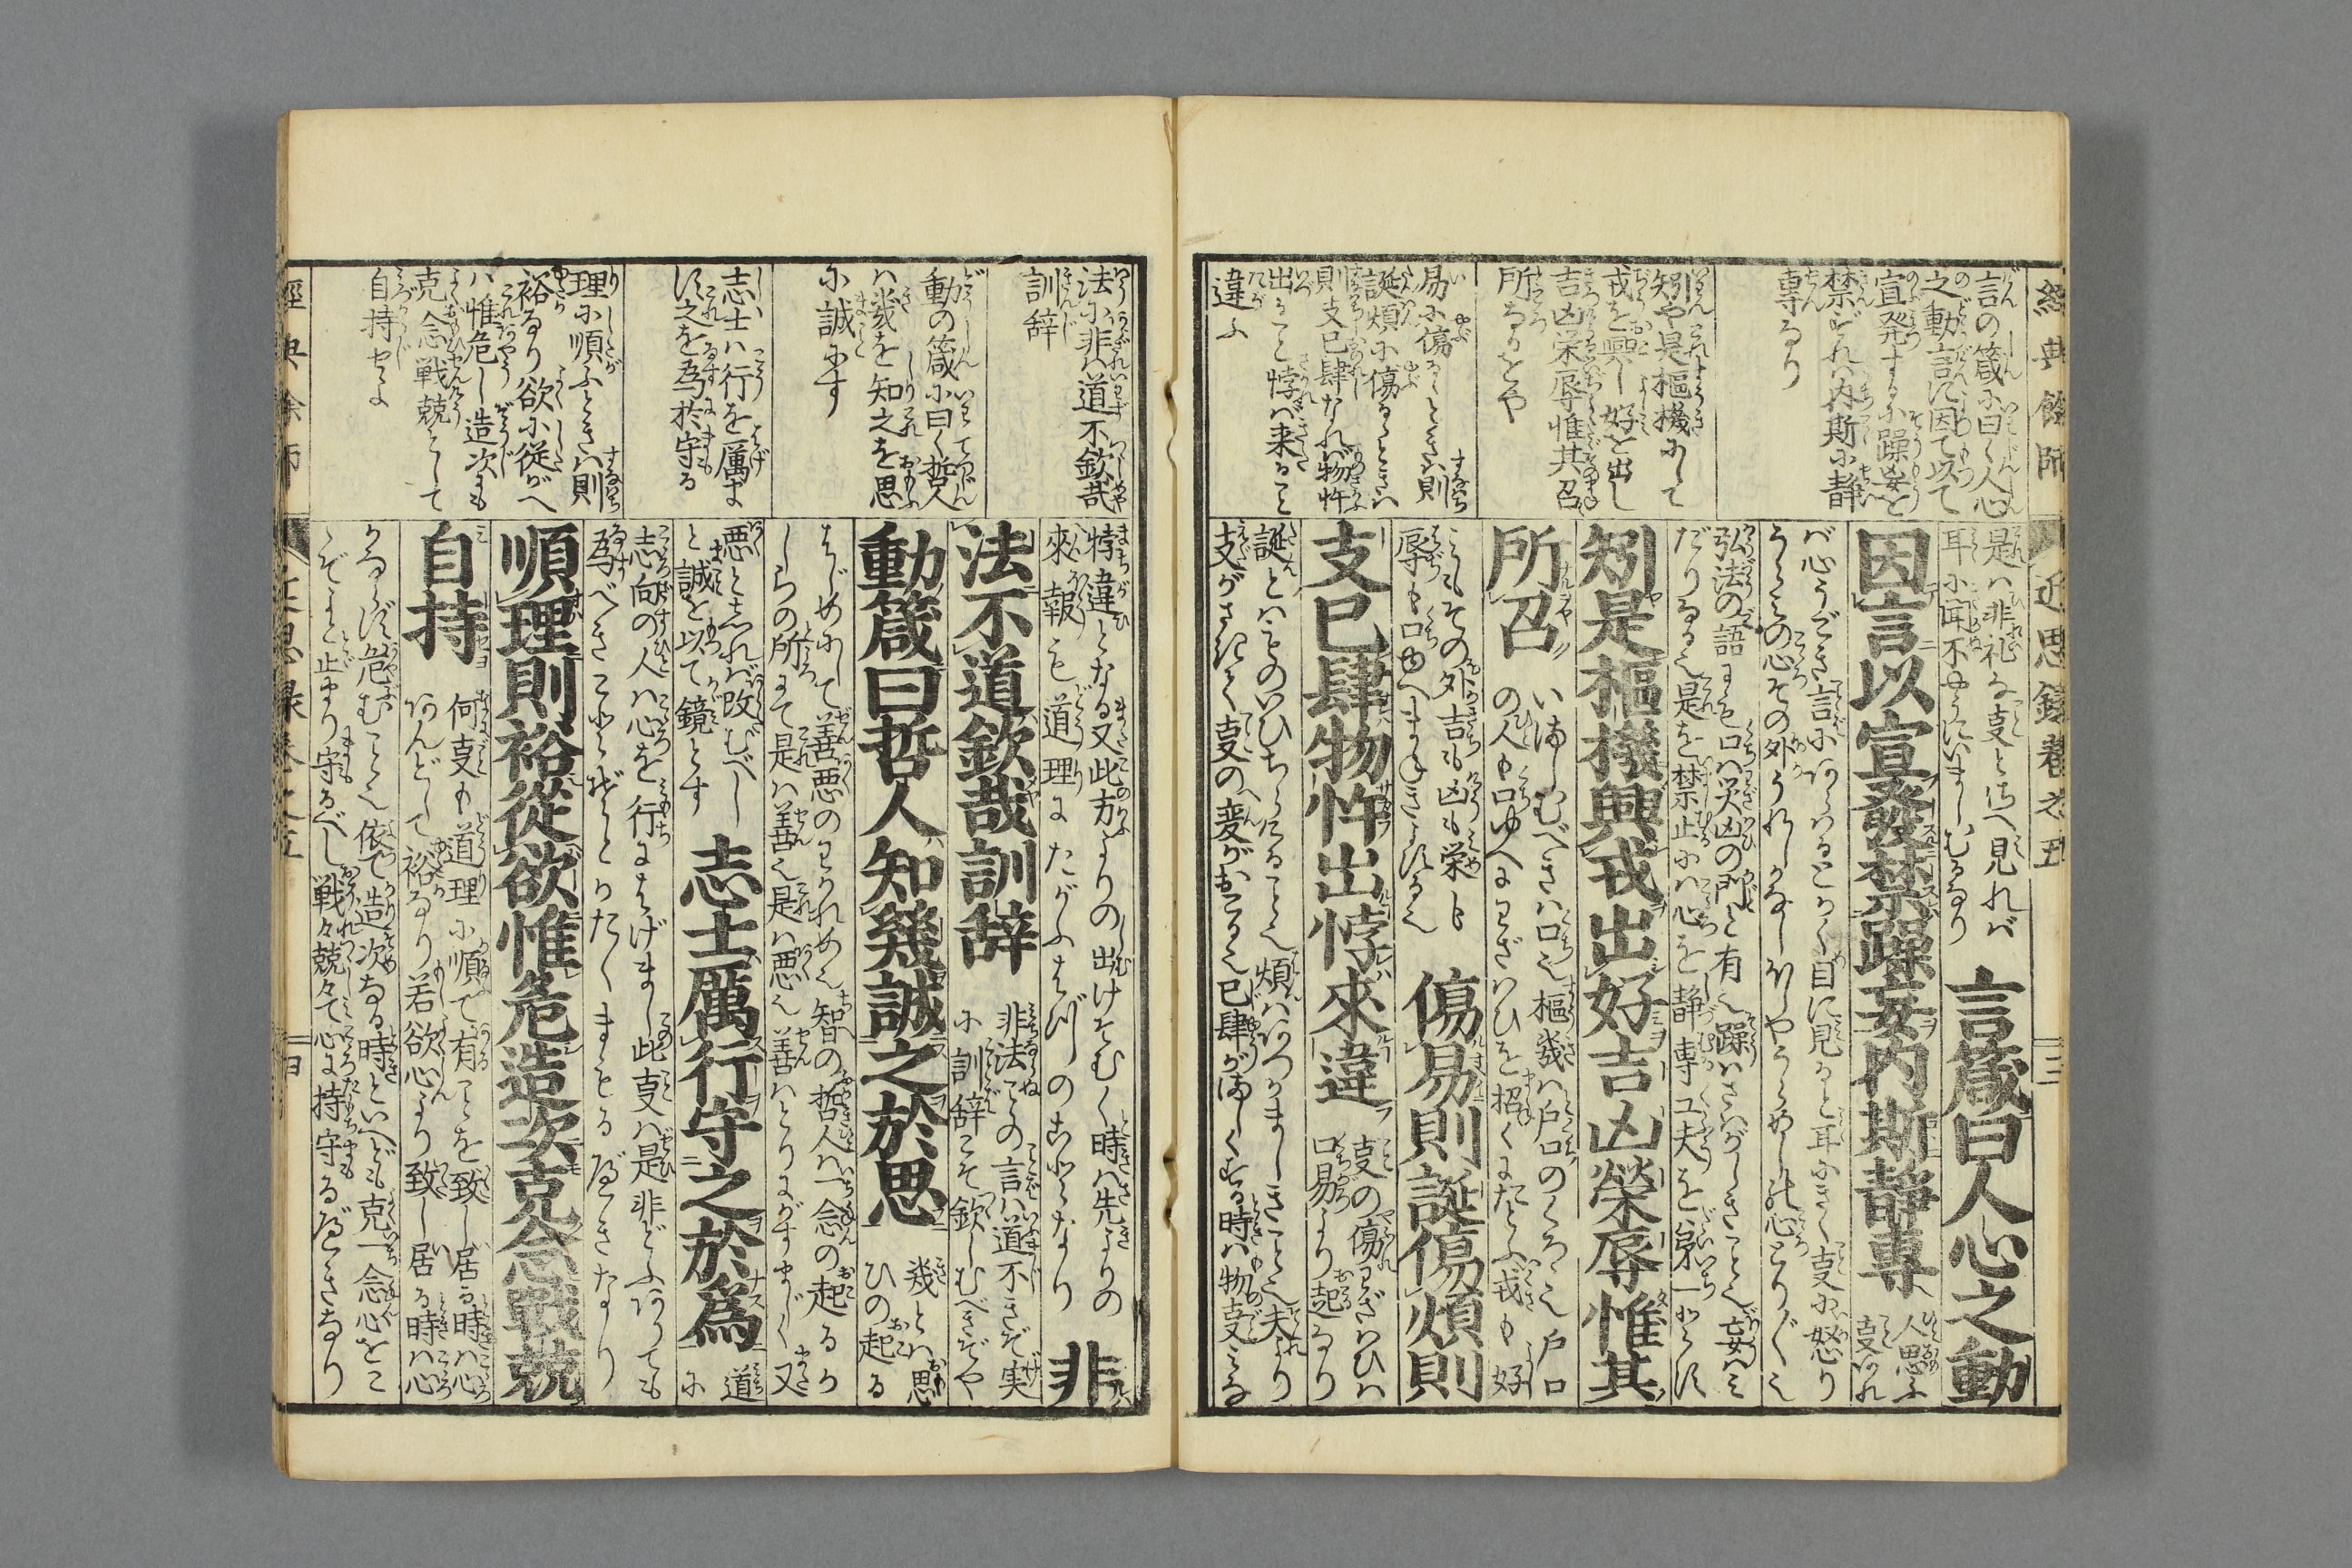 經典餘師
近思録巻之五
三
言の箴に曰く人心
之動言に因て以て
宣発するに躁妄を
禁ずれバ内斯に静
専なり
矧や是枢機にして
戎を興し好を出し
吉凶栄辱惟其召
所なるをや
易に傷るときハ則
誕煩に傷るときハ
則支己肆なれバ物忤
出ること悖バ来ること
違ふ
是ハ非礼な㕝とさへ見れバ
耳に聞不やうにいましむるなり
言箴曰人心之動
因言以宣發禁躁妄内斯靜專
人思ふ
㕝あれ
バ心うごき言にあらハるとかく目に見ると耳にきく㕝に怒り
弘法の語にも口ハ災凶の門と有之躁ハさハがしきこと之妄ハみ
だりなる之是を禁止に心を静専工夫を第一とす
矧是樞機興戎出好吉凶榮辱惟其
所召
いましむべきハ口之樞機ハ戸口のくろゝ之戸口
の人も口ゆへにわざハひを招くにたとふ戎も好
こしもその外吉も凶も栄も
辱も口ゆへまねきよする之
傷易則誕傷煩則
支已肆物忤出悖來違
㕝の傷わざハひハ
口易より起るなり
誕とハものいひちらすること之煩ハわづらハましきこと之夫より
支がさきて㕝の変がおこる之已肆がましくする時ハ物㕝みな
法に非バ道不欽哉
訓辞
動の箴に曰く哲人
ハ幾を知之を思
に誠にす
志士ハ行を厲ま
し之を為於守る
理に順ふときハ則
裕なり欲に從がへ
バ惟危し造次にも
克念戦兢として
自持せよ
悖違となる又此方よりの出けそむく時ハ先よりの
來報も道理にたがふはづのことなり
非
法不道欽哉訓辞
非法ことの言ハ道不きぞ実
に訓辞こそ欽しむべきぞや
動箴曰哲人知幾誠之於思
幾とハ思
ひの起る
はじめにして善悪のわかれめ之智の哲人ハ一念の起るか
しらの所にて是ハ善之是ハ悪之善ハとりにがすまじく又
悪としれバ改むべし
と誠を以て鏡とす
志士厲行守之於爲
道
に
志向の人ハ心を行にはげまし此㕝ハ是非どふあつても
為べきことぞとかたくまもるべきなり
順理則裕從欲惟危造次克念戰兢
自持
何㕝も道理に順て有ことを致し居る時ハ心
あんどして裕なり若欲心より致し居る時ハ心
かならず危むこと之依て造次なる時といへども克一念心をこ
こぞよと止まり守るべし戦々兢々て心に持守るべきなり